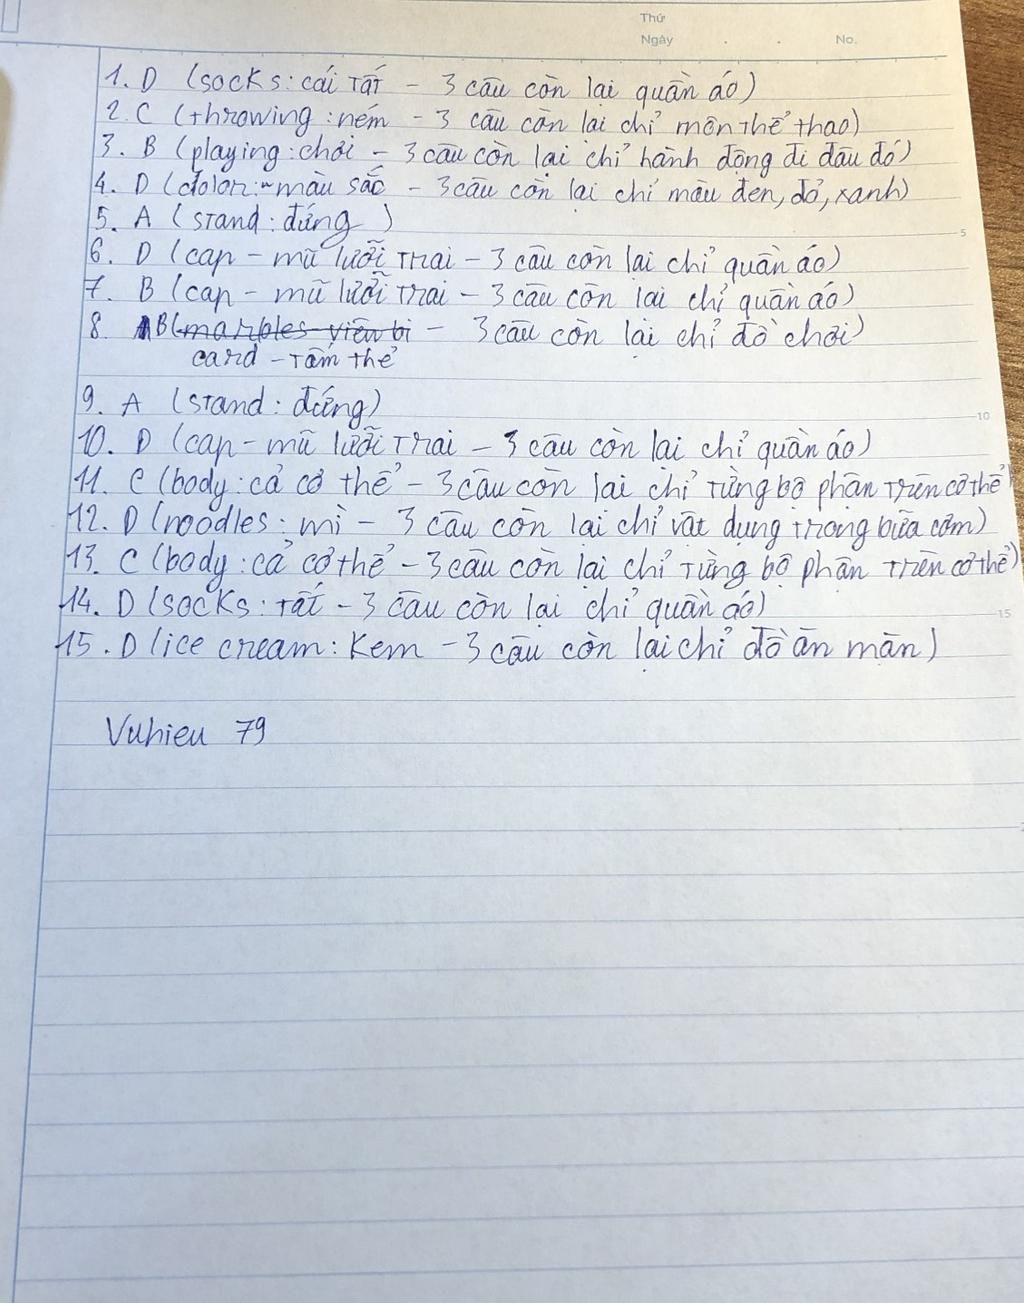 Thứ
Ngày . . No.
1. D (socks: cái tất - 3 câu còn lại quần áo)
2. C (throwing: ném - 3 câu còn lại chỉ môn thể thao)
3. B (playing: chơi - 3 câu còn lại chỉ hành động đi đâu đó)
4. D (color: - màu sắc - 3 câu còn lại chỉ màu đen, đỏ, xanh)
5. A (stand: đứng )
5
6. D (cap - mũ lưỡi trai - 3 câu còn lại chỉ quần áo)
7. B (cap - mũ lưỡi trai - 3 câu còn lại chỉ quần áo)
8. B (marples - viên bi - 3 câu còn lại chỉ đồ chơi)
card - Tấm thẻ
9. A (stand: đứng)
10
10. D (cap - mũ lưỡi trai - 3 câu còn lại chỉ quần áo)
11. C (body: cả cơ thể - 3 câu còn lại chỉ từng bộ phận trên cơ thể)
12. D (noodles: mì - 3 câu còn lại chỉ vật dụng trong bữa cơm)
13. C (body: cả cơ thể - 3 câu còn lại chỉ từng bộ phận trên cơ thể)
14. D (socks: tất - 3 câu còn lại chỉ quần áo)
15
15. D (ice cream: kem - 3 câu còn lại chỉ đồ ăn mặn)
Vuhieu 79